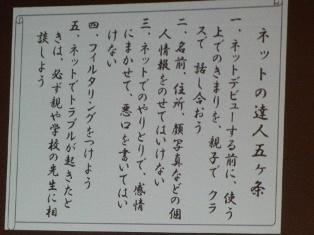 ネットの達人五ヶ条
一、ネットデビューする前に、使う
上でのきまりを、親子で クラ
スで 話し合おう
二、名前、住所、顔写真などの個
人情報をのせてはいけない
三、ネットでのやりとりで、感情
にまかせて、悪口を書いてはい
けない
四、フィルタリングをつけよう
五、ネットでトラブルが起きたと
きは、必ず親や学校の先生に相
談しよう